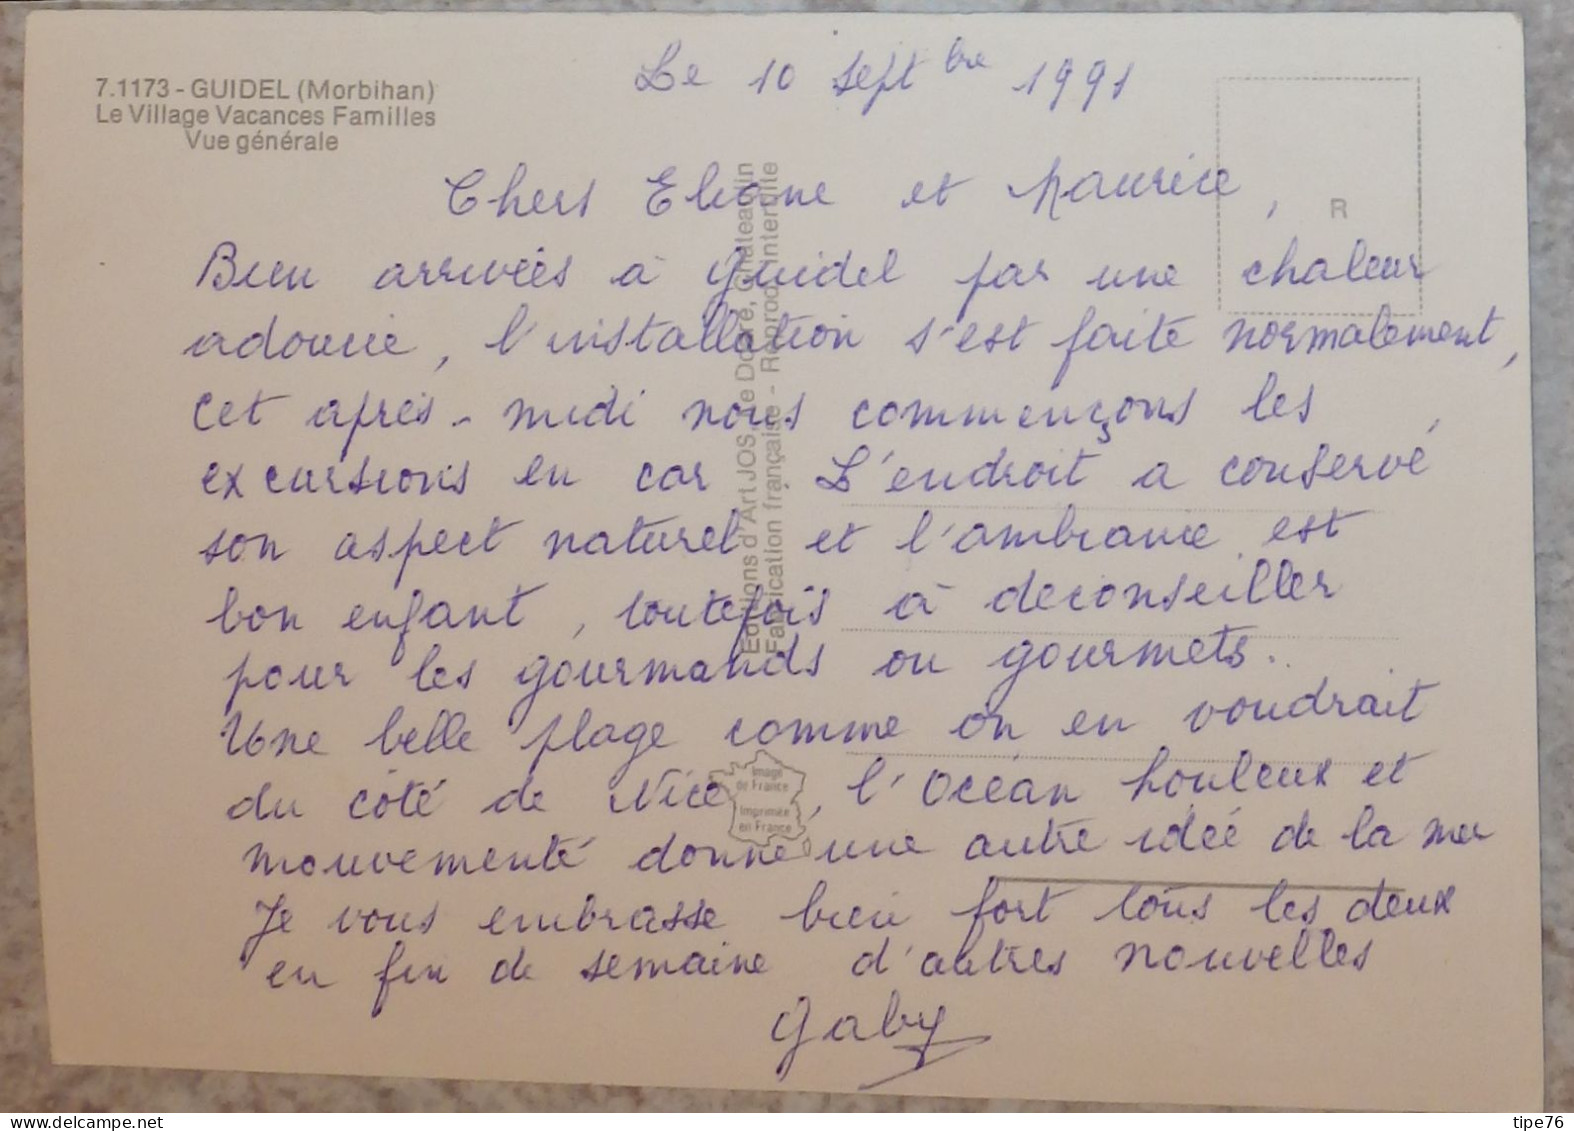 7.1173 - GUIDEL (Morbihan)
Le Village Vacances Familles
Vue générale
Le 10 Septbre 1991
R
Chers Eliane et Maurice,
Bien arrivées à Guidel par une chaleur
adoucie, l'installation s'est faite normalement,
cet après-midi nous commençons les
excursions en car. L'endroit a conservé
son aspect naturel et l'ambiance est
bon enfant, toutefois à deconseiller
pour les gourmands ou gourmets..
Une belle plage comme on en voudrait
du côté de Nice, l'Océan houleux et
mouvementé donne une autre idée de la mer
Je vous embrasse bien fort tous les deux
en fin de semaine d'autres nouvelles
Gaby
Editions d'Art JOS, Le Doaré, Châteaulin
Fabrication française - Reprod. interdite
Image
de France
Imprimée
en France
tipe76